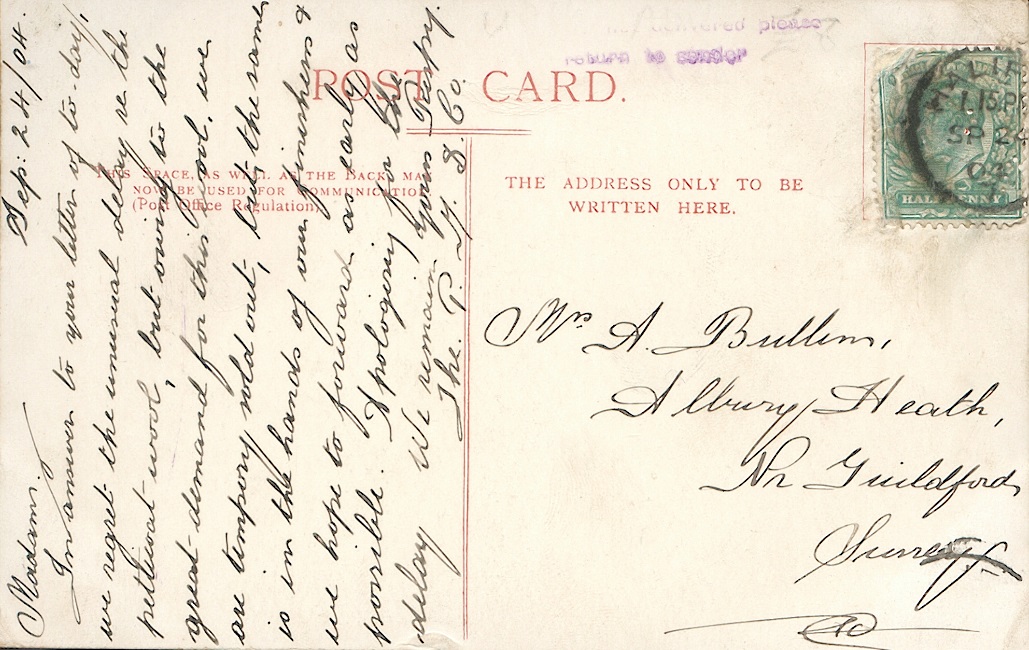 not delivered please
return to sender
POST CARD.
THIS SPACE, AS WELL AS THE BACK, MAY
NOW BE USED FOR COMMUNICATION
(Post Office Regulation)
THE ADDRESS ONLY TO BE
WRITTEN HERE.
LIF
1.15 P
SP 24
04
HALFPENNY
Sep: 24/04.
Madam.
In answer to your letter of to-day,
we regret the unusual delay re the
petticoat wool, but owing to the
great demand for this wool, we
are tempory sold out, but the same
is in the hands of our finishers &
we hope to forward as early as
possible. Apologing for the
delay We remain Yours Respy.
The P. Ty. D. Co.
Mrs A. Bullen,
Albury Heath,
Nr Guildford
Surrey